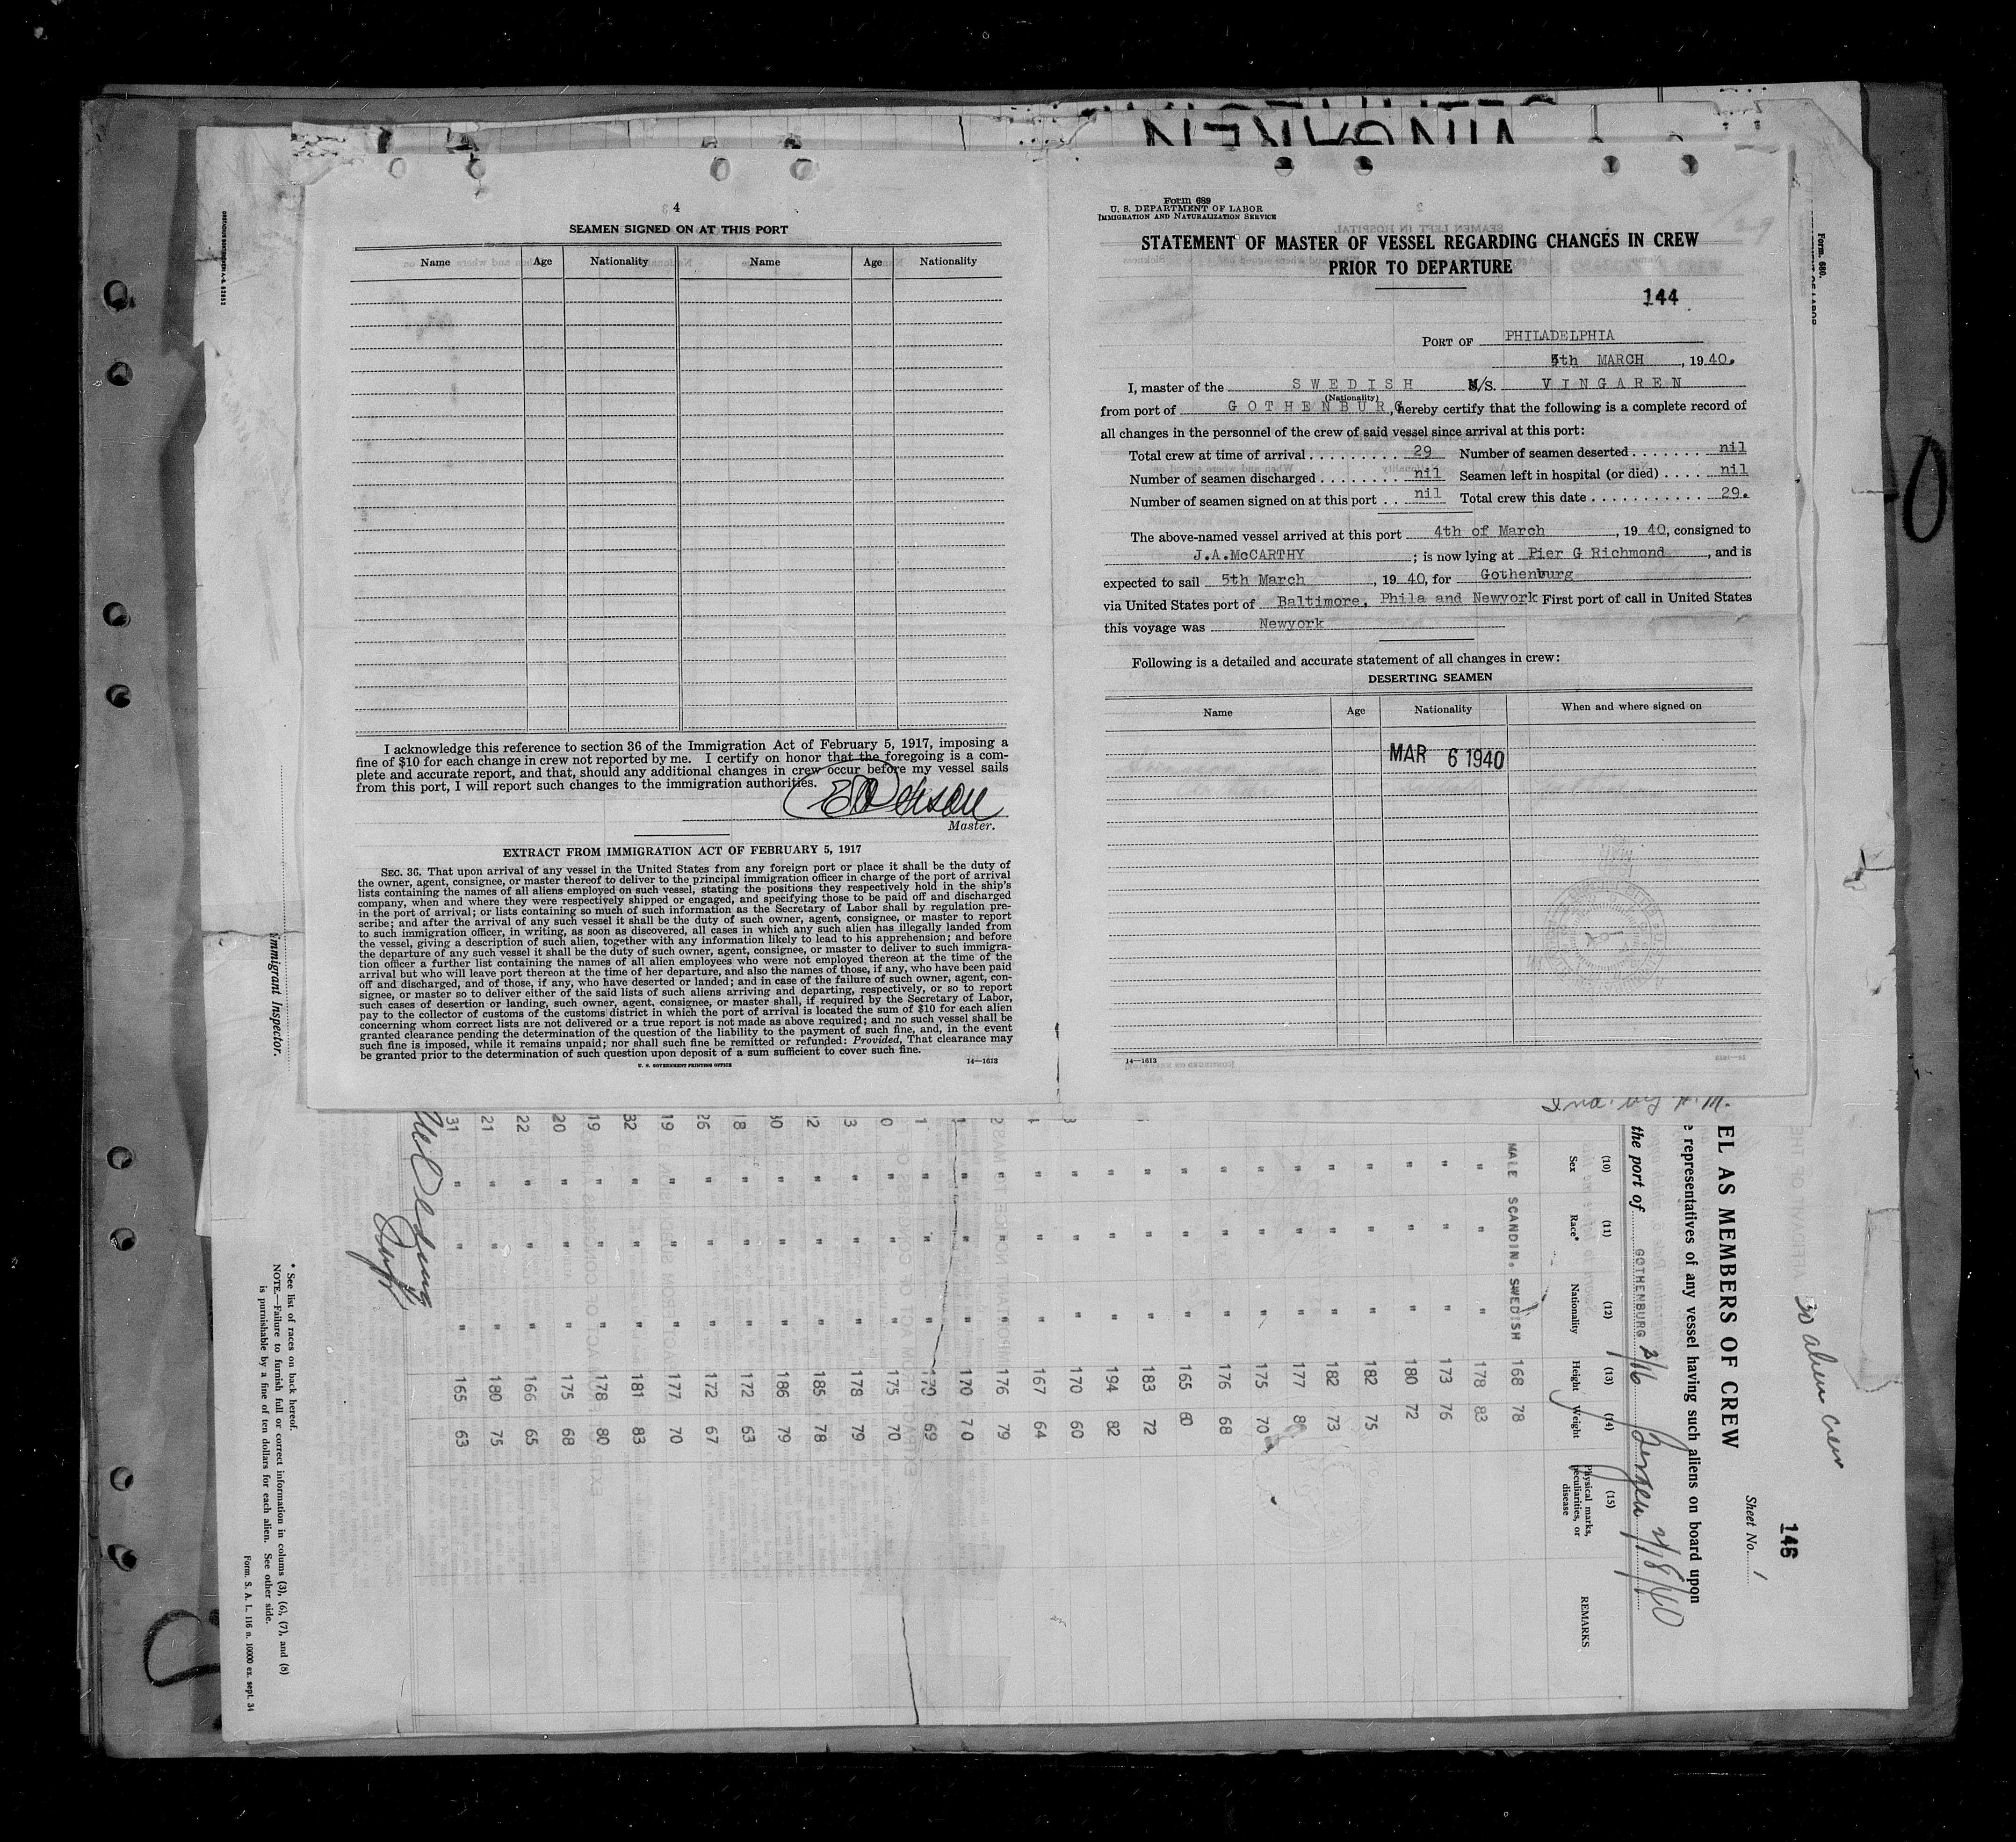 VINGAREN
4
SEAMEN SIGNED ON AT THIS PORT
Name Age Nationality Name Age Nationality
I acknowledge this reference to section 36 of the Immigration Act of February 5, 1917, imposing a
fine of $10 for each change in crew not reported by me. I certify on honor that the foregoing is a com-
plete and accurate report, and that, should any additional changes in crew occur before my vessel sails
from this port, I will report such changes to the immigration authorities.
Master.
EXTRACT FROM IMMIGRATION ACT OF FEBRUARY 5, 1917
SEC. 36. That upon arrival of any vessel in the United States from any foreign port or place it shall be the duty of
the owner, agent, consignee, or master thereof to deliver to the principal immigration officer in charge of the port of arrival
lists containing the names of all aliens employed on such vessel, stating the positions they respectively hold in the ship's
company, when and where they were respectively shipped or engaged, and specifying those to be paid off and discharged
in the port of arrival; or lists containing so much of such information as the Secretary of Labor shall by regulation pre-
scribe; and after the arrival of any such vessel it shall be the duty of such owner, agent, consignee, or master to report
to such immigration officer, in writing, as soon as discovered, all cases in which any such alien has illegally landed from
the vessel, giving a description of such alien, together with any information likely to lead to his apprehension; and before
the departure of any such vessel it shall be the duty of such owner, agent, consignee, or master to deliver to such immigra-
tion officer a further list containing the names of all alien employees who were not employed thereon at the time of the
arrival but who will leave port thereon at the time of her departure, and also the names of those, if any, who have been paid
off and discharged, and of those, if any, who have deserted or landed; and in case of the failure of such owner, agent, con-
signee, or master so to deliver either of the said lists of such aliens arriving and departing, respectively, or so to report
such cases of desertion or landing, such owner, agent, consignee, or master shall, if required by the Secretary of Labor,
pay to the collector of customs of the customs district in which the port of arrival is located the sum of $10 for each alien
concerning whom correct lists are not delivered or a true report is not made as above required; and no such vessel shall be
granted clearance pending the determination of the question of the liability to the payment of such fine, and, in the event
such fine is imposed, while it remains unpaid; nor shall such fine be remitted or refunded: Provided, That clearance may
be granted prior to the determination of such question upon deposit of a sum sufficient to cover such fine.
U. S. GOVERNMENT PRINTING OFFICE 14—1613
Form 689
U. S. DEPARTMENT OF LABOR
IMMIGRATION AND NATURALIZATION SERVICE
STATEMENT OF MASTER OF VESSEL REGARDING CHANGES IN CREW
PRIOR TO DEPARTURE
144
PORT OF PHILADELPHIA
5th MARCH, 1940.
I, master of the SWEDISH M/S. VINGAREN
(Nationality)
from port of GOTHENBURG, hereby certify that the following is a complete record of
all changes in the personnel of the crew of said vessel since arrival at this port:
Total crew at time of arrival 29 Number of seamen deserted nil
Number of seamen discharged nil Seamen left in hospital (or died) nil
Number of seamen signed on at this port nil Total crew this date 29.
The above-named vessel arrived at this port 4th of March, 1940, consigned to
J.A.McCARTHY; is now lying at Pier G Richmond, and is
expected to sail 5th March, 1940, for Gothenburg
via United States port of Baltimore, Phila and Newyork First port of call in United States
this voyage was Newyork
Following is a detailed and accurate statement of all changes in crew:
DESERTING SEAMEN
Name Age Nationality When and where signed on
MAR 6 1940
14—1613
Form 680.
Immigrant Inspector.
30 alien crew
146
Sheet No. 1
EL AS MEMBERS OF CREW
e representatives of any vessel having such aliens on board upon
the port of GOTHENBURG 2/16 Bergen 2/18/40
(10) (11) (12) (13) (14) (15)
Sex Race* Nationality Height Weight Physical marks, peculiarities, or disease REMARKS
MALE SCANDIN. SWEDISH 168 78
" " " 178 83
" " " 173 76
" " " 180 72
" " " 182 75
" " " 182 73
" " " 177
" " " 175 70
" " " 176 68
" " " 165 60
" " " 183 72
" " " 194 82
" " " 170 60
" " " 167 64
" " " 176 79
" " " 170 70
" " " 170 69
" " " 175 70
" " " 178 79
" " " 185 78
" " " 186 79
18 " " " 172 63
26 " " " 172 67
19 " " " 177 70
32 " " " 181 83
19 " " " 178 80
20 " " " 175 68
22 " " " 166 65
21 " " " 180 75
31 " " " 165 63
* See list of races on back hereof.
NOTE.—Failure to furnish full or correct information in colums (3), (6), (7), and (8)
is punishable by a fine of ten dollars for each alien. See other side.
Form. S. A. L. 116 n. 10000 ex. sept. 34